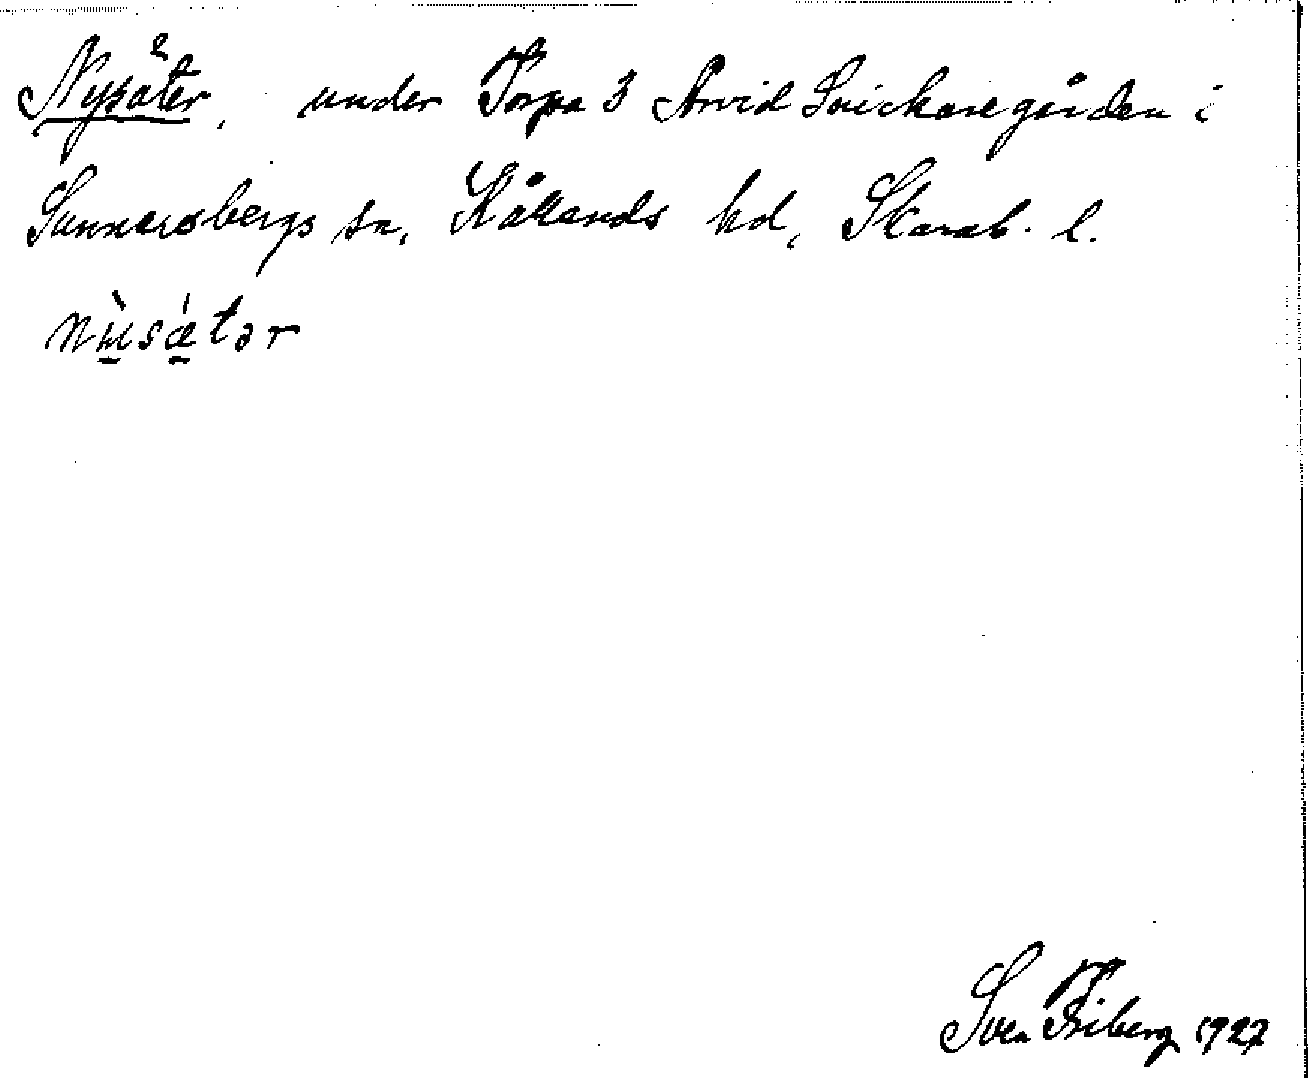 Nysäter, under Torpa 3 Arvid Snickaregården i
Sunnersbergs sn, Kållands hd, Skarab. l.
nùsǽtər
Sven Friberg 1927